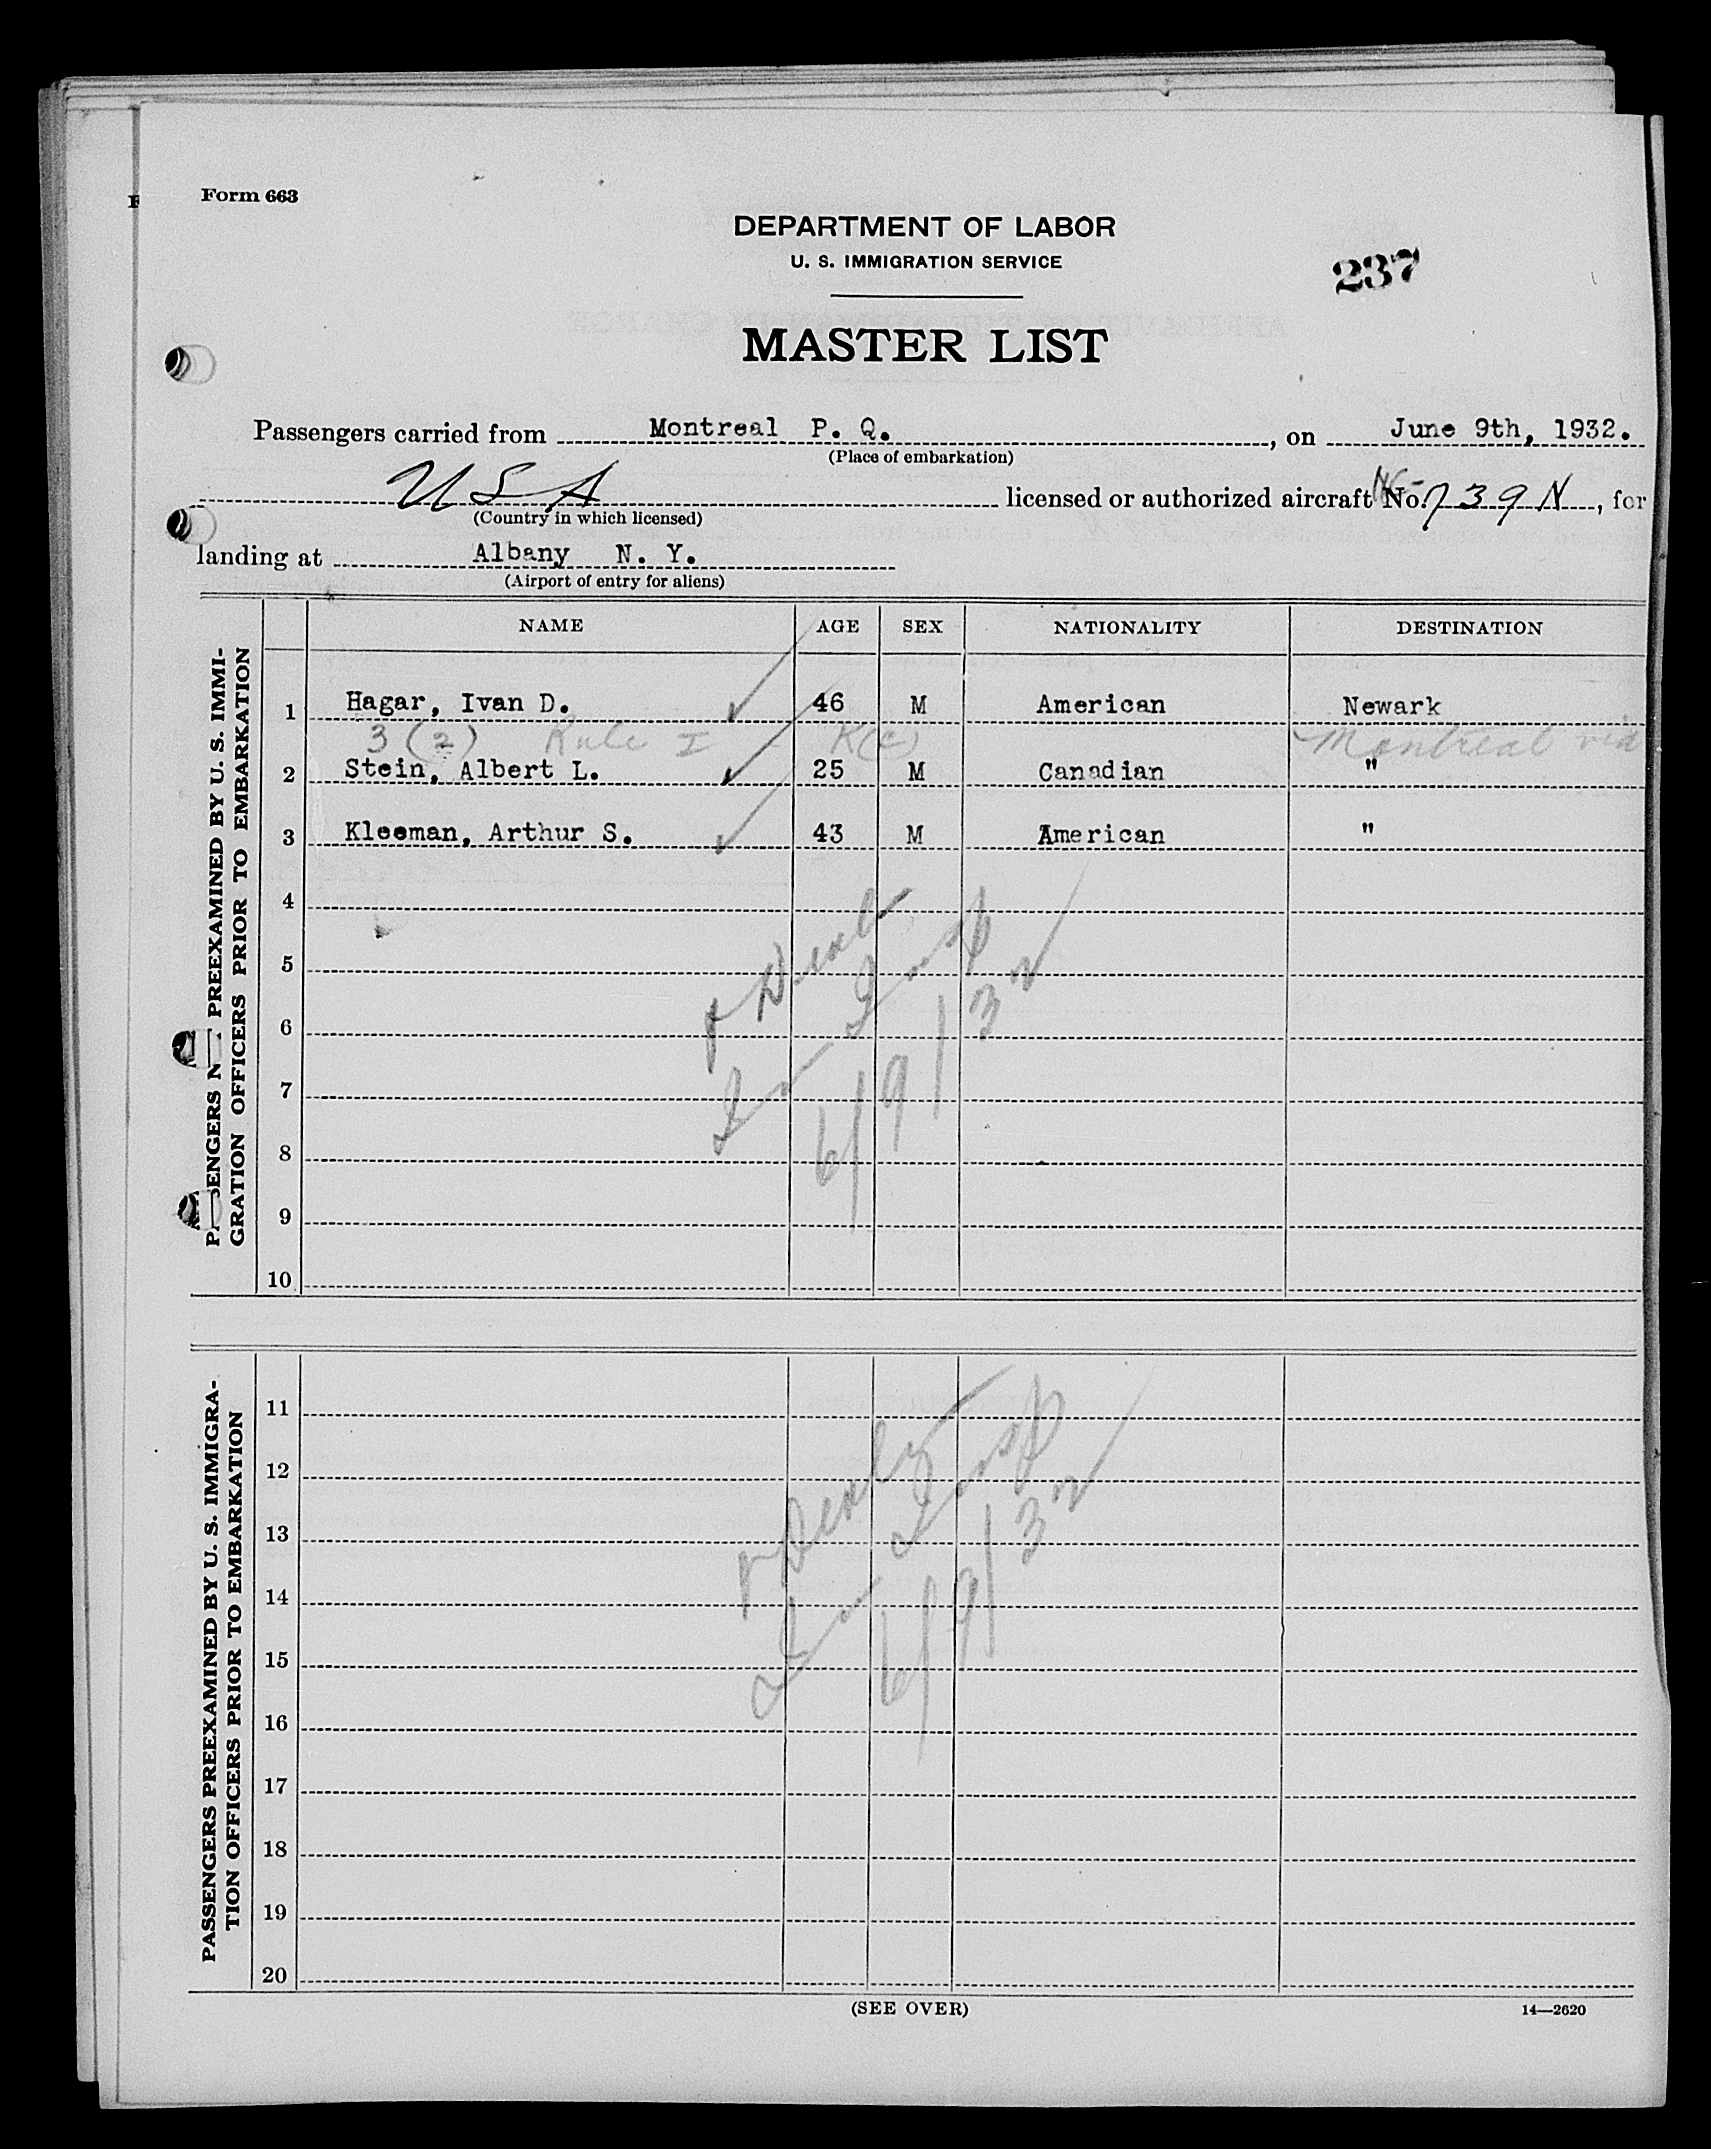 Form 663
DEPARTMENT OF LABOR
U. S. IMMIGRATION SERVICE
237
MASTER LIST
Passengers carried from Montreal P. Q. , on June 9th, 1932.
(Place of embarkation)
USA licensed or authorized aircraft No. 739N, for
(Country in which licensed)
landing at Albany N. Y.
(Airport of entry for aliens)
PASSENGERS N PREEXAMINED BY U. S. IMMI-
GRATION OFFICERS PRIOR TO EMBARKATION
NAME AGE SEX NATIONALITY DESTINATION
1 Hagar, Ivan D. 46 M American Newark
3 (2) Rule I K(c) Montreal via
2 Stein, Albert L. 25 M Canadian "
3 Kleeman, Arthur S. 43 M American "
4
5
6
7
8
9
10
6/9/32
PASSENGERS PREEXAMINED BY U. S. IMMIGRA-
TION OFFICERS PRIOR TO EMBARKATION
11
12
13
14
15
16
17
18
19
20
6/9/32
(SEE OVER)
14—2620